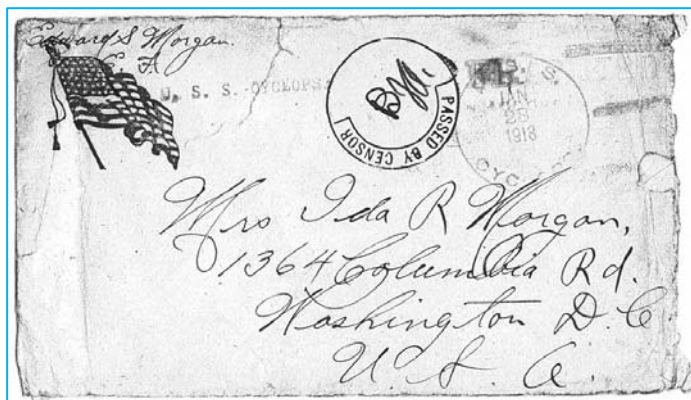 Edward S. Morgan.
U. S. S. CYCLOPS
PASSED BY CENSOR
U. S. S.
JAN
28
1918
CYC
Mrs Ida R Morgan,
1364 Columbia Rd.
Washington D. C.
U. S. A.